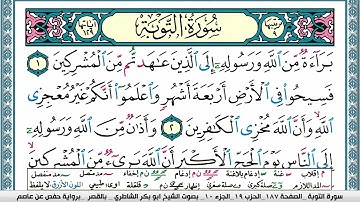 سُورَةُ التَّوْبَةِ
بَرَآءَةٌ مِّنَ ٱللَّهِ وَرَسُولِهِۦٓ إِلَى ٱلَّذِينَ عَٰهَدتُّم مِّنَ ٱلْمُشْرِكِينَ ١
فَسِيحُوا۟ فِى ٱلْأَرْضِ أَرْبَعَةَ أَشْهُرٍ وَٱعْلَمُوٓا۟ أَنَّكُمْ غَيْرُ مُعْجِزِى
ٱللَّهِ وَأَنَّ ٱللَّهَ مُخْزِى ٱلْكَٰفِرِينَ ٢ وَأَذَٰنٌ مِّنَ ٱللَّهِ وَرَسُولِهِۦٓ
إِلَى ٱلنَّاسِ يَوْمَ ٱلْحَجِّ ٱلْأَكْبَرِ أَنَّ ٱللَّهَ بَرِىٓءٌ مِّنَ ٱلْمُشْرِكِينَ
سورة التوبة - الصفحة ١٨٧ - الجزء ١٠ - بصوت الشيخ أبو بكر الشاطري - بالقصر - برواية حفص عن عاصم